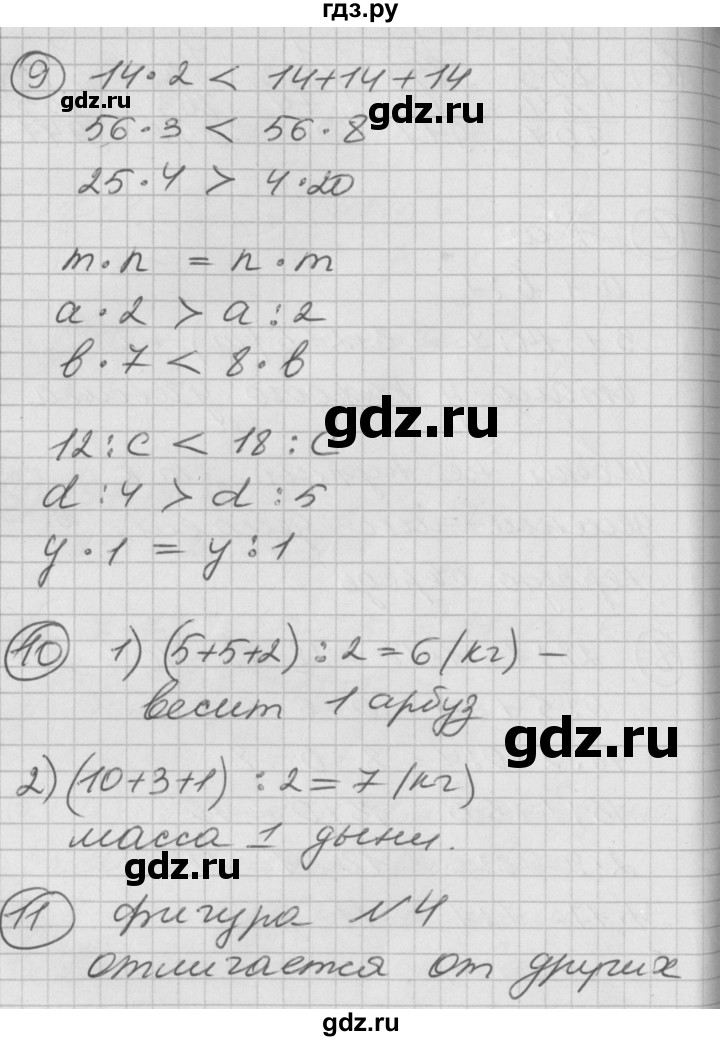 гдз.ру
9 14·2 < 14+14+14
gdz.ru
gdz.ru
56·3 < 56·8
25·4 > 4·20
m·n = n·m
a·2 > a:2
в·7 < 8·в
gdz.ru
12:c < 18:c
d:4 > d:5
y·1 = y:1
10 1) (5+5+2):2=6 (кг) –
весит 1 арбуз
gdz.ru
2) (10+3+1):2=7 (кг)
масса 1 дыни.
gdz.ru
11 фигура №4
отличается от других
gdz.ru